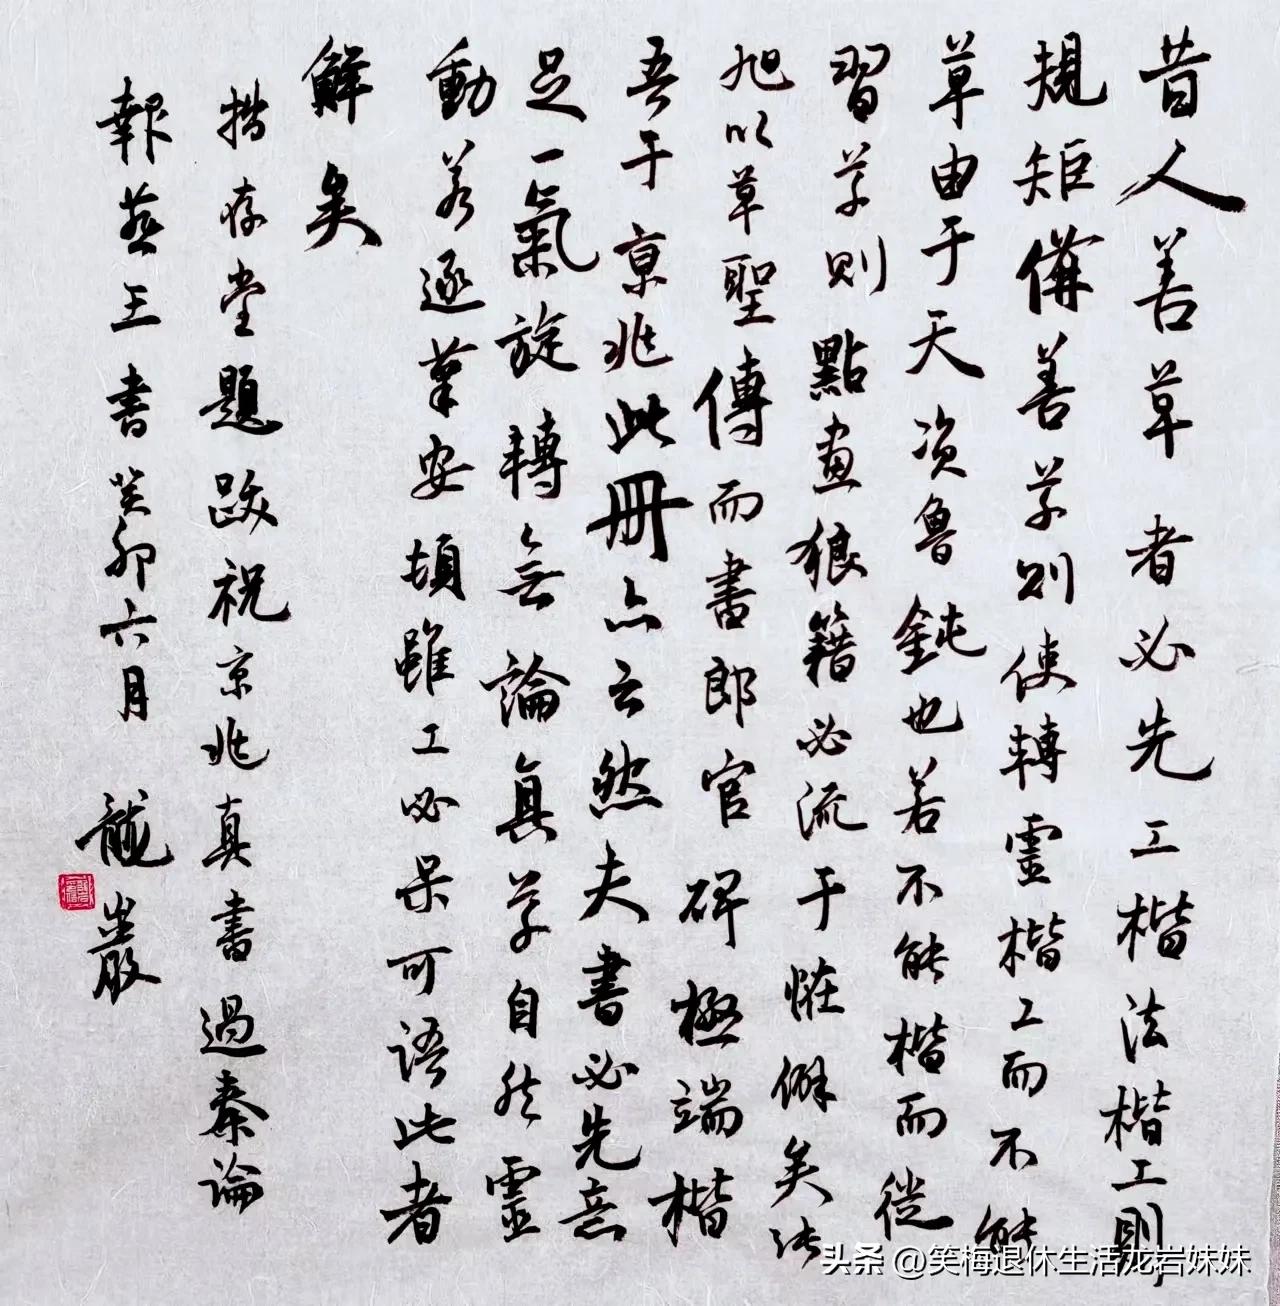 昔人善草者必先工楷法楷工則
規矩備善草則使轉靈楷工而不能
草由于天資魯鈍也若不能楷而徒
習草則點畫狼籍必流于恠僻矣張
旭以草聖傳而書郎官碑極端楷
吾于京兆此冊亦云然夫書必先意
足一氣旋轉無論真草自然靈
動若逐筆安頓雖工必呆可語此者
鮮矣
楷存堂題跋祝京兆真書過秦論
報燕王書癸卯六月 龍巖
头条 @笑梅退休生活龙岩妹妹